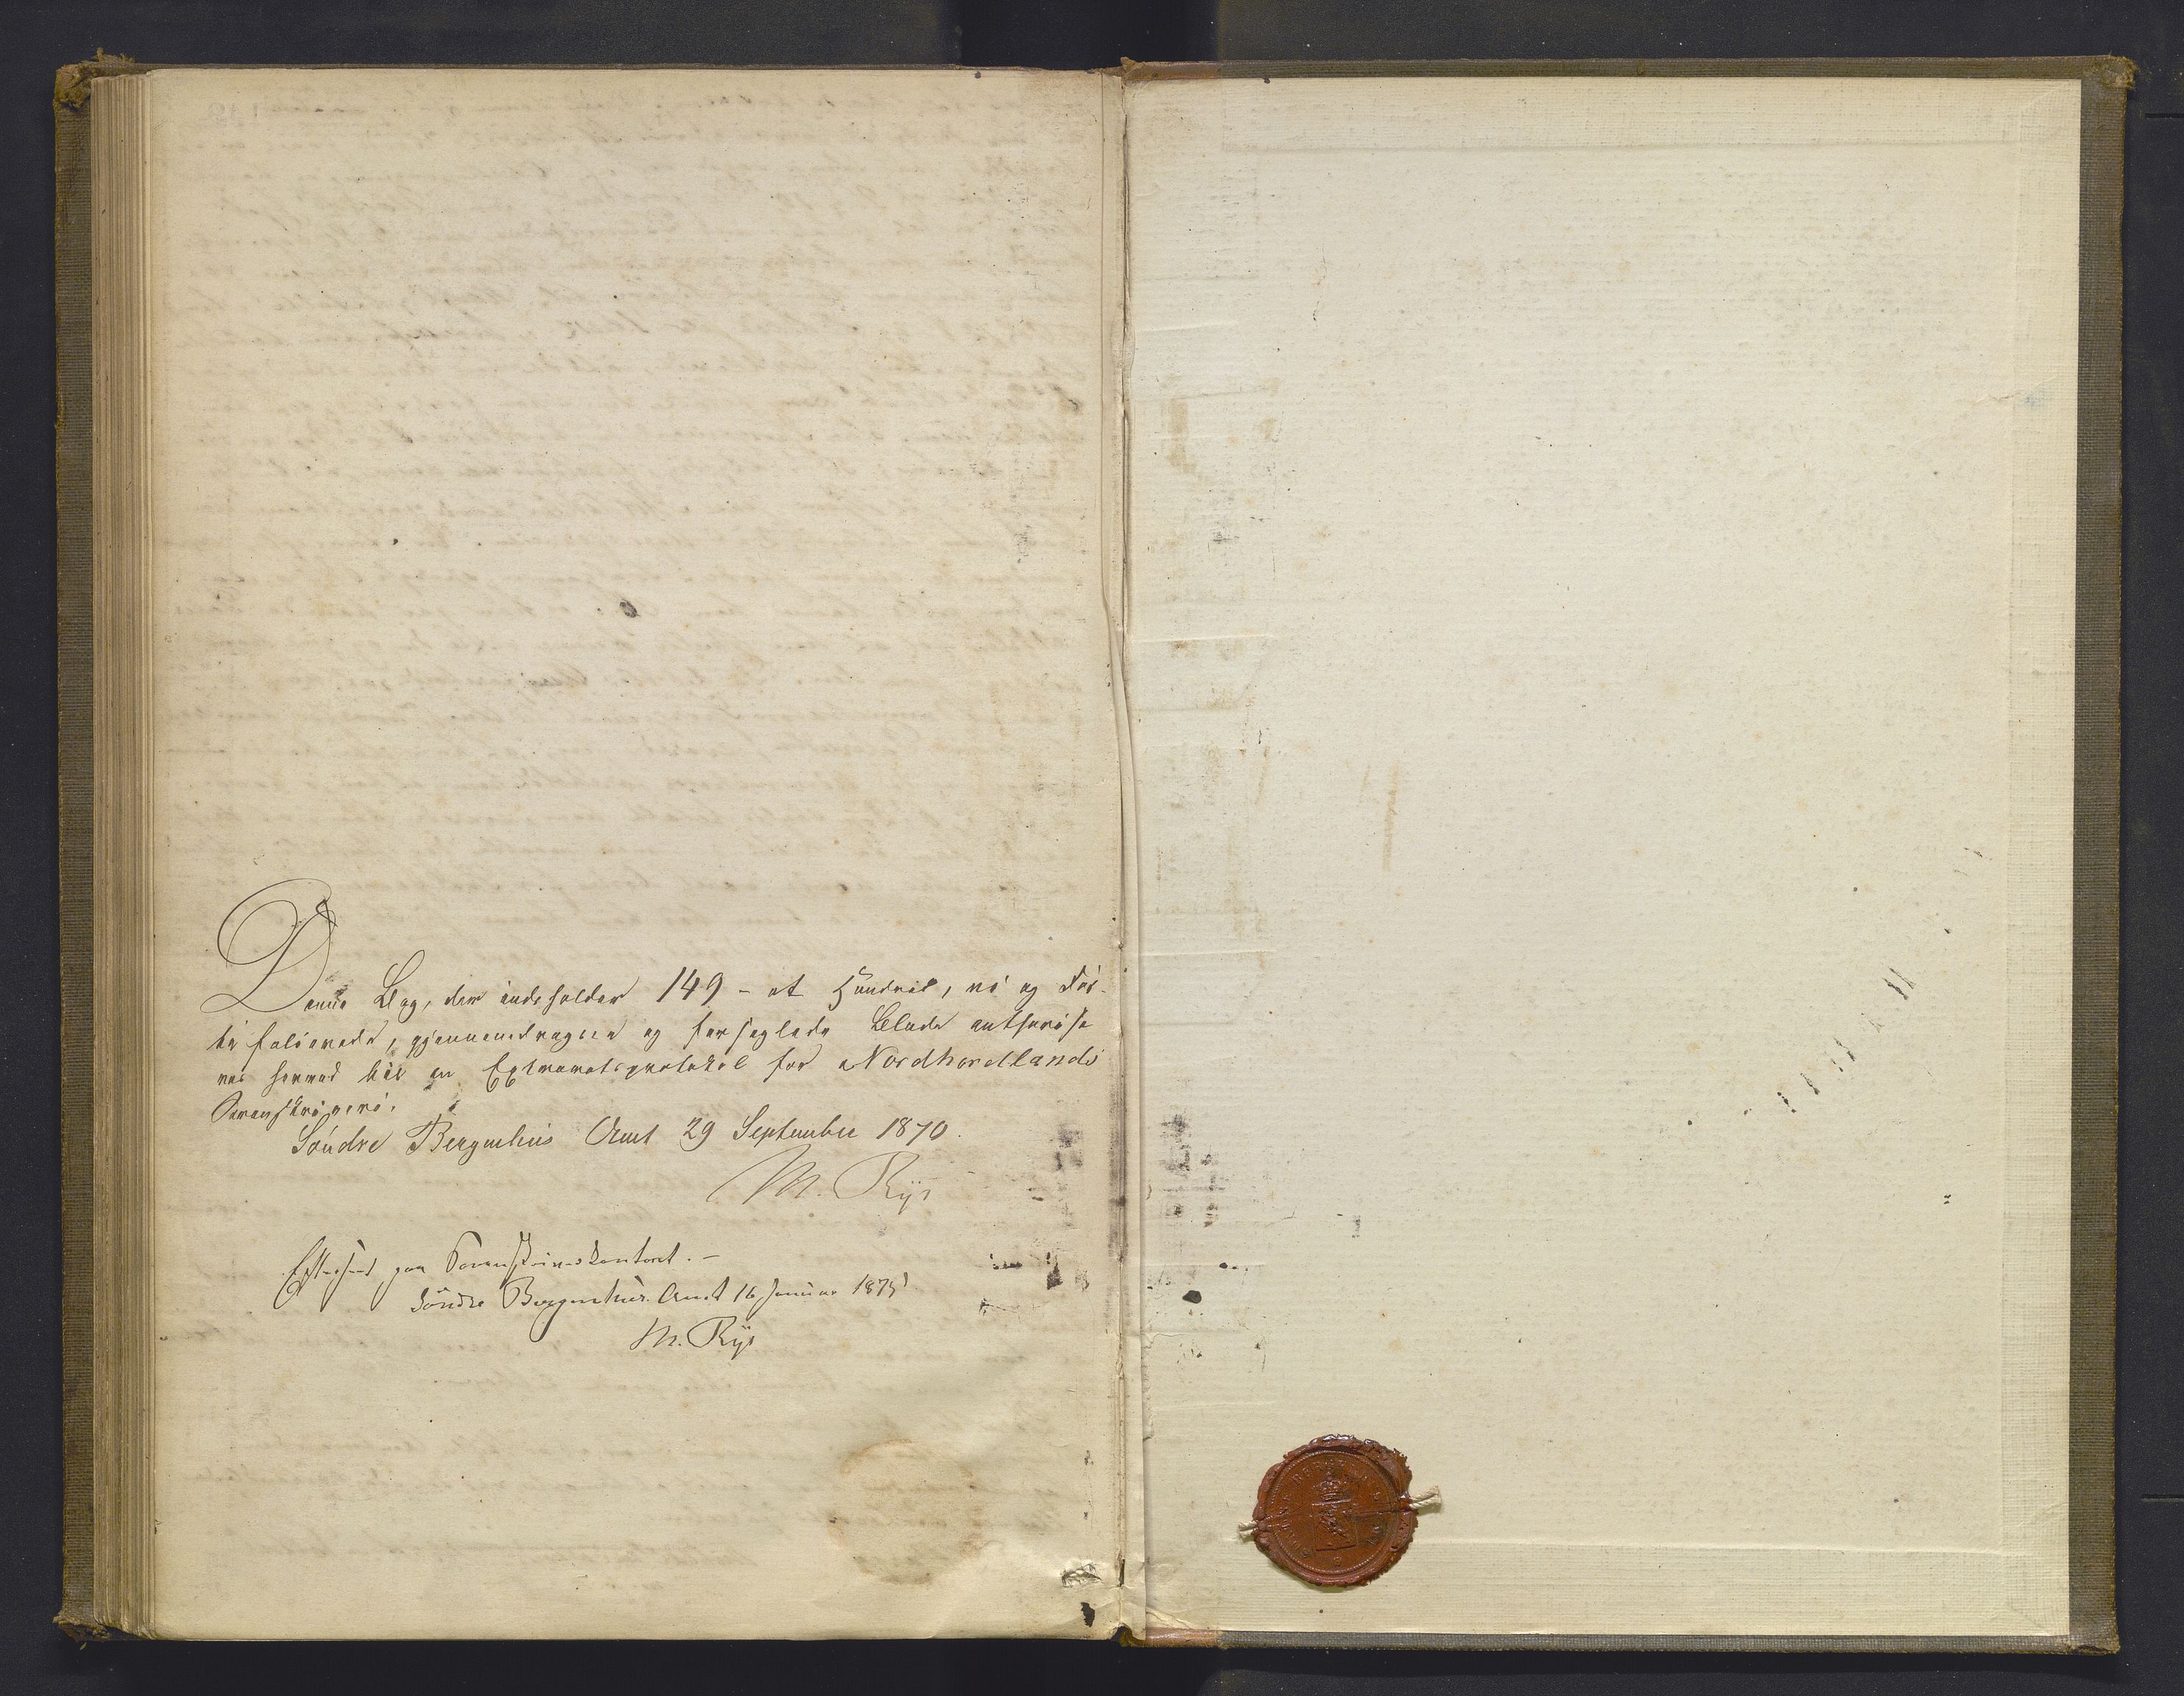 Denne Bog, der indeholder 149 - et Hundred, ni og Før-
ti folierede, gjennemdragne og forseglede Blade authorise-
res herved til en Extraretsprotokol for Nordhordlands
Sorenskriveri.
Söndre Bergenhus Amt 29 September 1870.
M. Rye
Efterseet paa Sorenskriverkontoret. -
Söndre Bergenhus Amt 16 Januar 1875
M. Rye